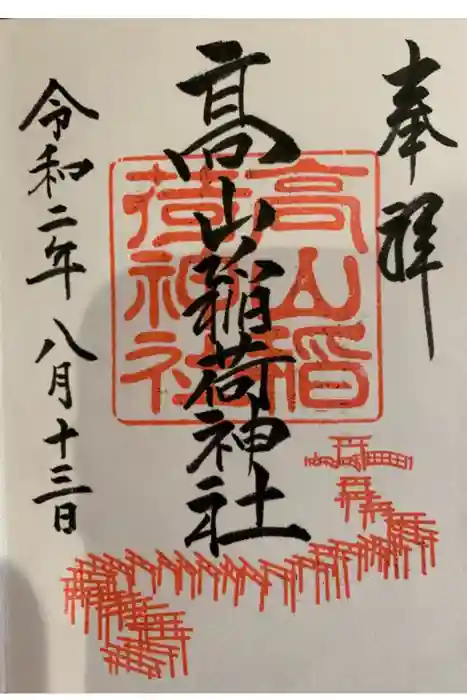 奉拝
高山稲荷神社
高山稲
荷神社
令和二年八月十三日